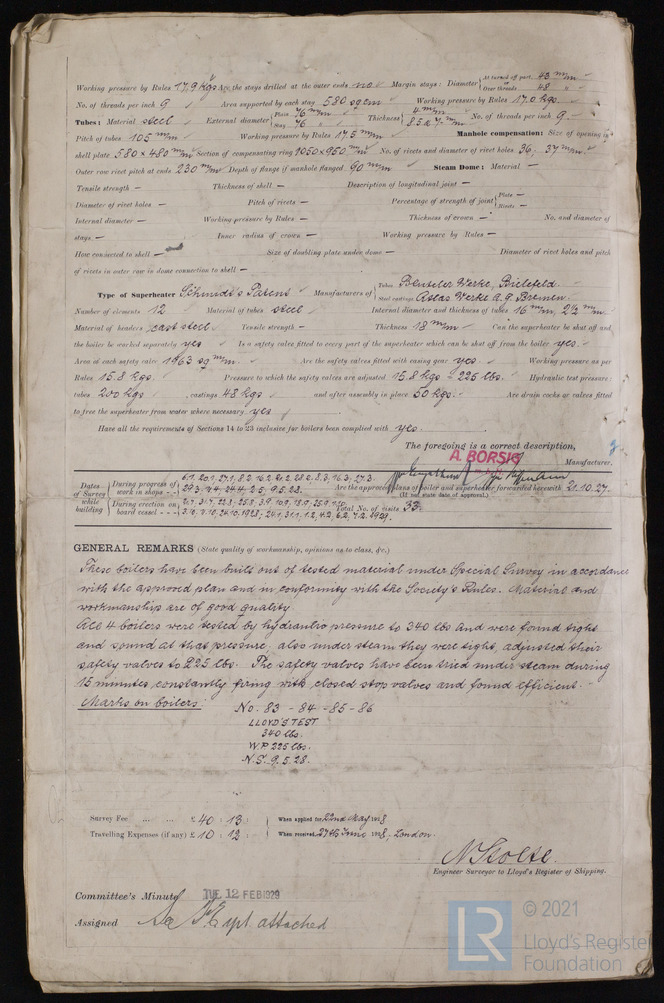 Working pressure by Rules 17,9 kgs Are the stays drilled at the outer ends no Margin stays: Diameter { At turned off part, 43 m/m
Over threads 48 "
No. of threads per inch 9 Area supported by each stay 580 sqcm Working pressure by Rules 17.0 kgs.
Tubes: Material steel External diameter { Plain 76 m/m Stay 76 " Thickness { 4 m/m 8.5 & 7 m/m No. of threads per inch 9.
Pitch of tubes 105 m/m Working pressure by Rules 17.5 m/m Manhole compensation: Size of opening in
shell plate 580 x 480 m/m Section of compensating ring 1050x950 m/m No. of rivets and diameter of rivet holes 36, 37 m/m
Outer row rivet pitch at ends 230 m/m Depth of flange if manhole flanged 90 m/m Steam Dome: Material —
Tensile strength — Thickness of shell — Description of longitudinal joint —
Diameter of rivet holes — Pitch of rivets — Percentage of strength of joint { Plate — Rivets —
Internal diameter — Working pressure by Rules — Thickness of crown — No. and diameter of
stays — Inner radius of crown — Working pressure by Rules —
How connected to shell — Size of doubling plate under dome — Diameter of rivet holes and pitch
of rivets in outer row in dome connection to shell —
Type of Superheater Schmidt's Patent Manufacturers of { Tubes Benteler Werke, Bielefeld.
Steel castings Atlas Werke A.G. Bremen.
Number of elements 12 Material of tubes steel Internal diameter and thickness of tubes 16 m/m, 2½ m/m
Material of headers cast steel Tensile strength — Thickness 18 m/m Can the superheater be shut off and
the boiler be worked separately yes Is a safety valve fitted to every part of the superheater which can be shut off from the boiler yes.
Area of each safety valve 1963 sq m/m. Are the safety valves fitted with easing gear yes. Working pressure as per
Rules 15.8 kgs. Pressure to which the safety valves are adjusted 15.8 kgs = 225 lbs. Hydraulic test pressure:
tubes 200 kgs, castings 48 kgs and after assembly in place 50 kgs. Are drain cocks or valves fitted
to free the superheater from water where necessary yes
Have all the requirements of Sections 14 to 23 inclusive for boilers been complied with yes.
The foregoing is a correct description,
A. BORSIG
Manufacturer.
Dates of Survey while building { During progress of work in shops - - { 6.1. 20.1. 27.1. 8.2. 16.2. 21.2. 28.2. 8.3. 16.3. 27.3.
29.3. 24.4. 2.5. 9.5.28. Are the approved plans of boiler and superheater forwarded herewith 21.10.27.
(If not state date of approval.)
During erection on board vessel - - - Total No. of visits 33.
GENERAL REMARKS (State quality of workmanship, opinions as to class, &c.)
These boilers have been built out of tested material under Special Survey in accordance
with the approved plan and in conformity with the Society's Rules. Material and
workmanship are of good quality
All 4 boilers were tested by hydraulic pressure to 340 lbs and were found tight
and sound at that pressure, also under steam they were tight, adjusted their
safety valves to 225 lbs. The safety valves have been tried under steam during
15 minutes, constantly firing with closed stop valves and found efficient.
Marks on boilers: No. 83 - 84 - 85 - 86
LLOYD'S TEST
340 lbs.
W.P. 225 lbs.
N.S. 9.5.28.
Survey Fee ... ... £ 40 : 13 : When applied for, 22nd May 1928
Travelling Expenses (if any) £ 10 : 12 : When received, 27th June 1928, London.
N Stolte.
Engineer Surveyor to Lloyd's Register of Shipping.
Committee's Minute TUE 12 FEB 1929
Assigned See rpt. attached
LR © 2021
Lloyd's Register
Foundation